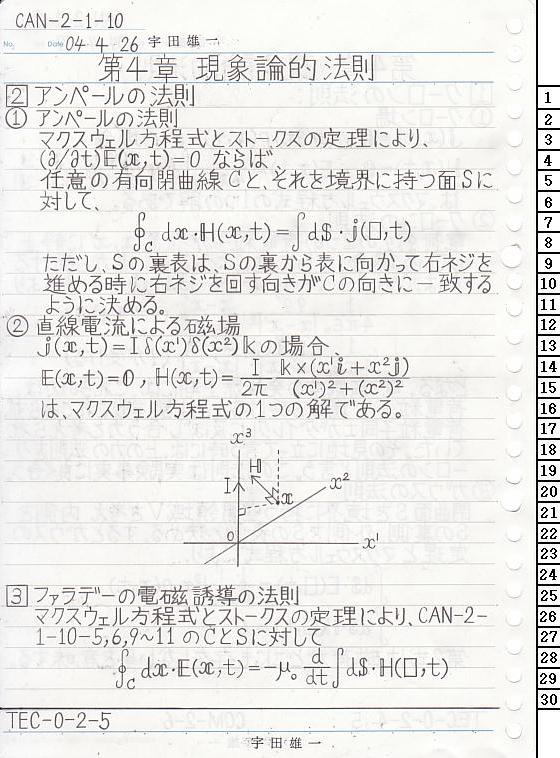 CAN-2-1-10
No.
Date 04 4.26 宇田雄一
第4章 現象論的法則
2 アンペールの法則
① アンペールの法則
マクスウェル方程式とストークスの定理により、
(∂/∂t)𝔼(𝕩,t)=0 ならば、
任意の有向閉曲線Cと、それを境界に持つ面Sに
対して、
∮_C d𝕩·ℍ(𝕩,t)=∫d𝕊·𝕛(□,t)
ただし、Sの裏表は、Sの裏から表に向かって右ネジを
進める時に右ネジを回す向きがCの向きに一致する
ように決める。
② 直線電流による磁場
𝕛(𝕩,t)=Iδ(x¹)δ(x²)𝕜の場合、
𝔼(𝕩,t)=0, ℍ(𝕩,t)=I/2π 𝕜×(x¹𝕚+x²𝕛)/(x¹)²+(x²)²
は、マクスウェル方程式の1つの解である。
x³
ℍ
I
𝕩
x²
0
x¹
3 ファラデーの電磁誘導の法則
マクスウェル方程式とストークスの定理により、CAN-2-
1-10-5,6,9~11 のCとSに対して
∮_C d𝕩·𝔼(𝕩,t)=-μ₀ d/dt∫d𝕊·ℍ(□,t)
TEC-0-2-5
宇田雄一
1
2
3
4
5
6
7
8
9
10
11
12
13
14
15
16
17
18
19
20
21
22
23
24
25
26
27
28
29
30